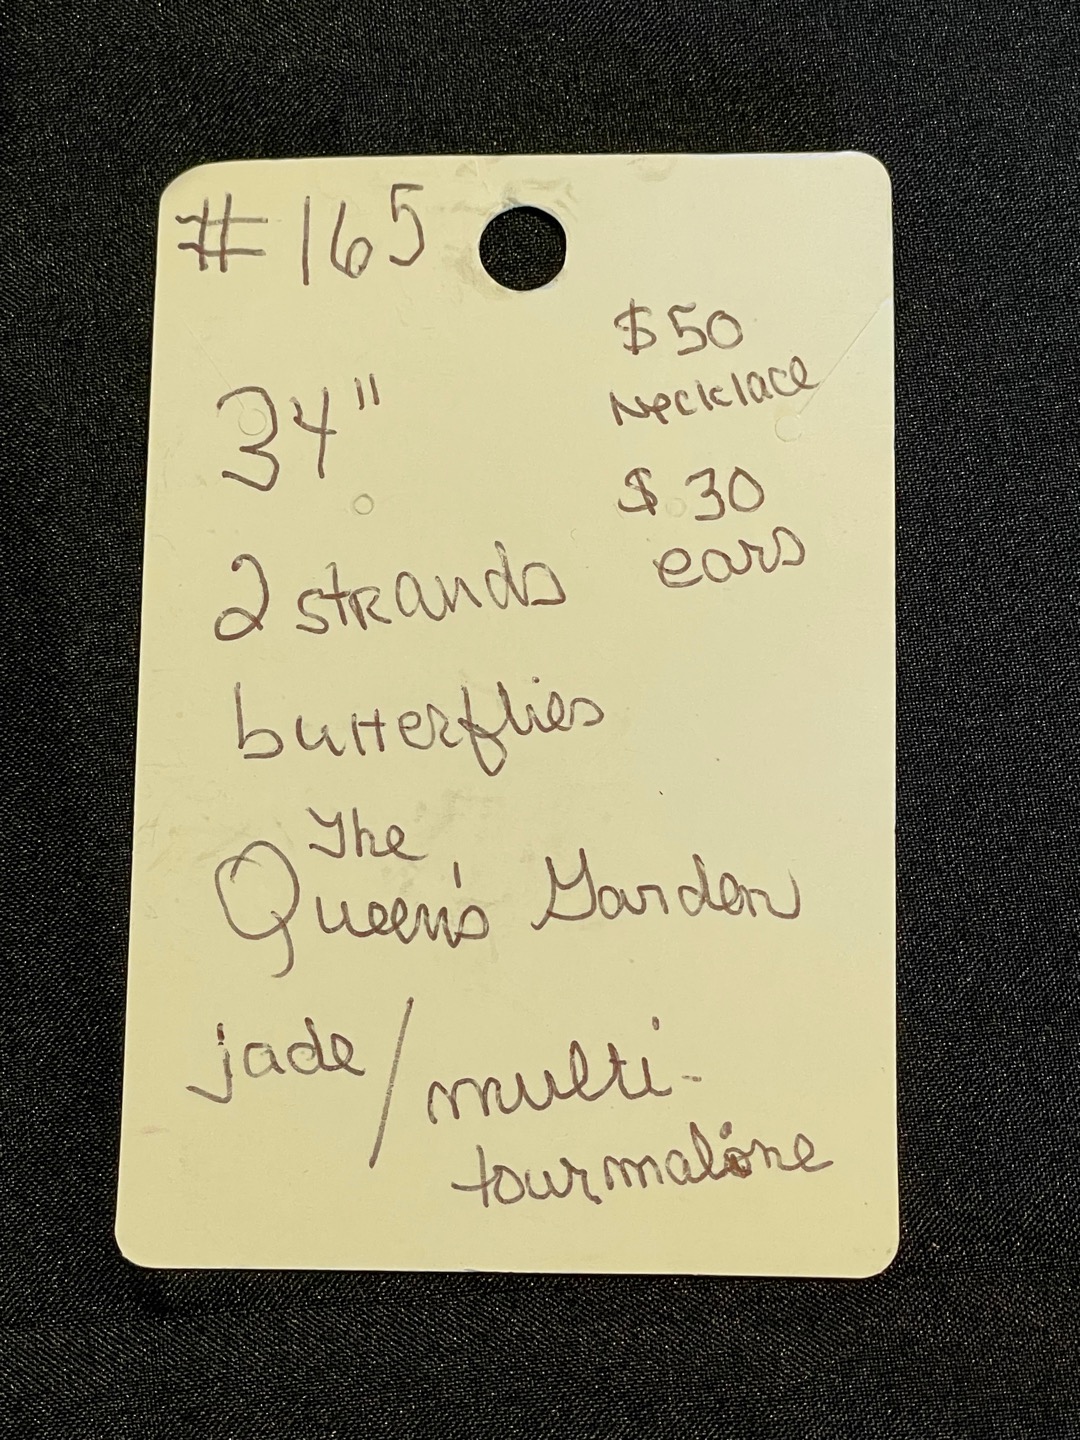 #165
$50
Necklace
$30
ears
34"
2 strands
butterflies
The
Queen's Garden
jade/multi-
tourmaline